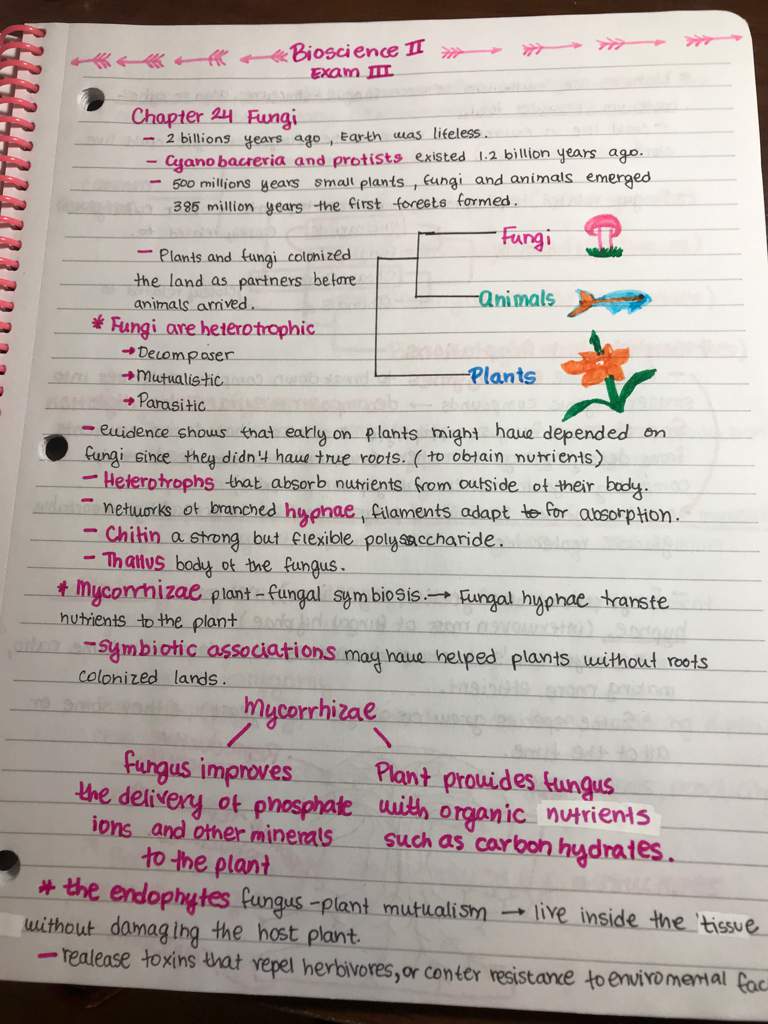 Bioscience II
Exam III
Chapter 24 Fungi
- 2 billions years ago, Earth was lifeless.
- Cyanobacreria and protists existed 1.2 billion years ago.
- 500 millions years small plants, fungi and animals emerged
385 million years the first forests formed.
- Plants and fungi colonized
the land as partners before
animals arrived.
Fungi
Animals
Plants
* Fungi are heterotrophic
→ Decomposer
→ Mutualistic
→ Parasitic
- evidence shows that early on plants might have depended on
fungi since they didn't have true roots. (to obtain nutrients)
- Heterotrophs that absorb nutrients from outside of their body.
- networks of branched hyphae, filaments adapt to for absorption.
- Chitin a strong but flexible polysaccharide.
- Thallus body of the fungus.
* Mycorrhizae plant-fungal symbiosis. → Fungal hyphae transfe
nutrients to the plant
- symbiotic associations may have helped plants without roots
colonized lands.
Mycorrhizae
fungus improves
the delivery of phosphate
ions and other minerals
to the plant
Plant provides fungus
with organic nutrients
such as carbohydrates.
* the endophytes fungus-plant mutualism → live inside the tissue
without damaging the host plant.
- realease toxins that repel herbivores, or confer resistance to enviromental fac